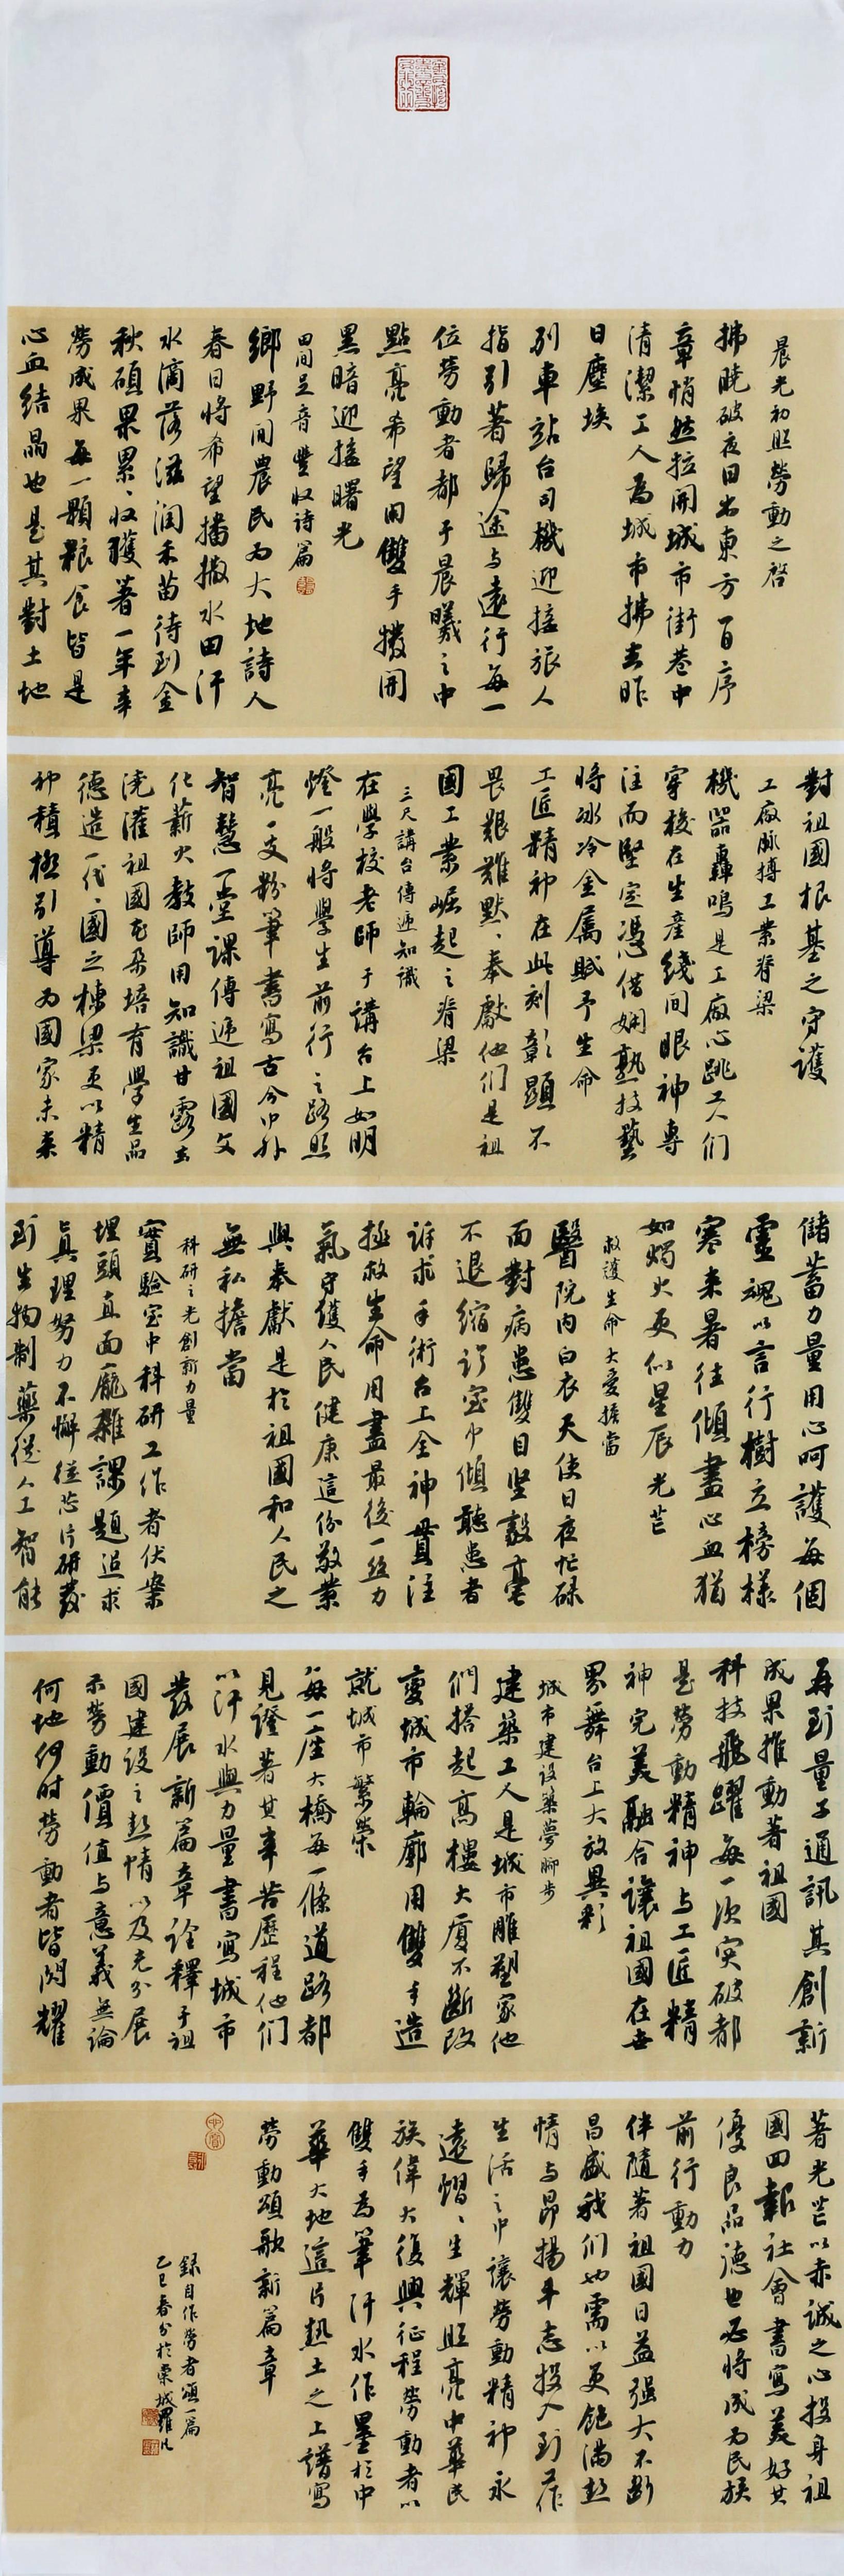 晨光初照勞動之啓
拂曉破夜日出東方一首序
章悄然拉開城市街巷中
清潔工人爲城市拂去昨
日塵埃
列車站台司機迎接旅人
指引著歸途与遠行每一
位勞動者都于晨曦之中
點亮希望用雙手撥開
黑暗迎接曙光
田間足音豐收詩篇
鄉野間農民为大地詩人
春日將希望播撒水田汗
水滴落滋潤禾苗待到金
秋碩果累、收穫著一年辛
勞成果每一顆粮食皆是
心血结晶也是其對土地
對祖國根基之守護
工廠脉搏工業脊梁
機器轟鳴是工廠心跳工人们
穿梭在生産綫間眼神專
注而堅定憑借嫻熟技藝
將冰冷金属賦予生命
工匠精神在此刻彰顯不
畏艱難默、奉獻他们是祖
國工業崛起之脊梁
三尺講台傳遞知識
在學校老師于講台上如明
燈一般將學生前行之路照
亮一支粉筆書寫古今中外
智慧一堂課傳遞祖國文
化薪火教師用知識甘露去
澆灌祖國花朵培育學生品
德造一代、國之棟梁更以精
神積極引導为國家未来
儲蓄力量用心呵護每個
靈魂以言行樹立榜様
寒来暑往傾盡心血猶
如燭火更似星辰光芒
救護生命大愛擔當
醫院内白衣天使日夜忙碌
面對病患雙目堅毅毫
不退縮診室中傾聽患者
訴求手術台上全神貫注
拯救生命用盡最後一絲力
氣守護人民健康這份敬業
與奉獻是於祖國和人民之
無私擔當
科研之光創新力量
實驗室中科研工作者伏案
埋頭直面龐雜課題追求
真理努力不懈從芯片研發
到生物制藥從人工智能
再到量子通訊其創新
成果推動著祖國
科技飛躍每一次突破都
是勞動精神与工匠精
神完美融合讓祖國在世
界舞台上大放異彩
城市建設築夢脚步
建築工人是城市雕塑家他
們搭起高樓大厦不斷改
變城市輪廓用雙手造
就城市繁榮
每一座大橋每一條道路都
見證著其辛苦歷程他们
以汗水與力量書寫城市
發展新篇章詮釋于祖
國建設之熱情以及充分展
示勞動價值与意義無論
何地何时勞動者皆閃耀
著光芒以赤誠之心投身祖
國回報社會書寫美好其
優良品德也必將成为民族
前行動力
伴隨著祖國日益强大不斷
昌盛我们也需以更飽滿熱
情与昂揚斗志投入到工作
生活之中讓勞動精神永
遠熠、生輝照亮中華民
族偉大復興征程勞動者以
雙手為筆汗水作墨於中
華大地這片熱土之上譜寫
勞動頌歌新篇章
録自作勞者頌一篇
乙巳春分於東城羅凡